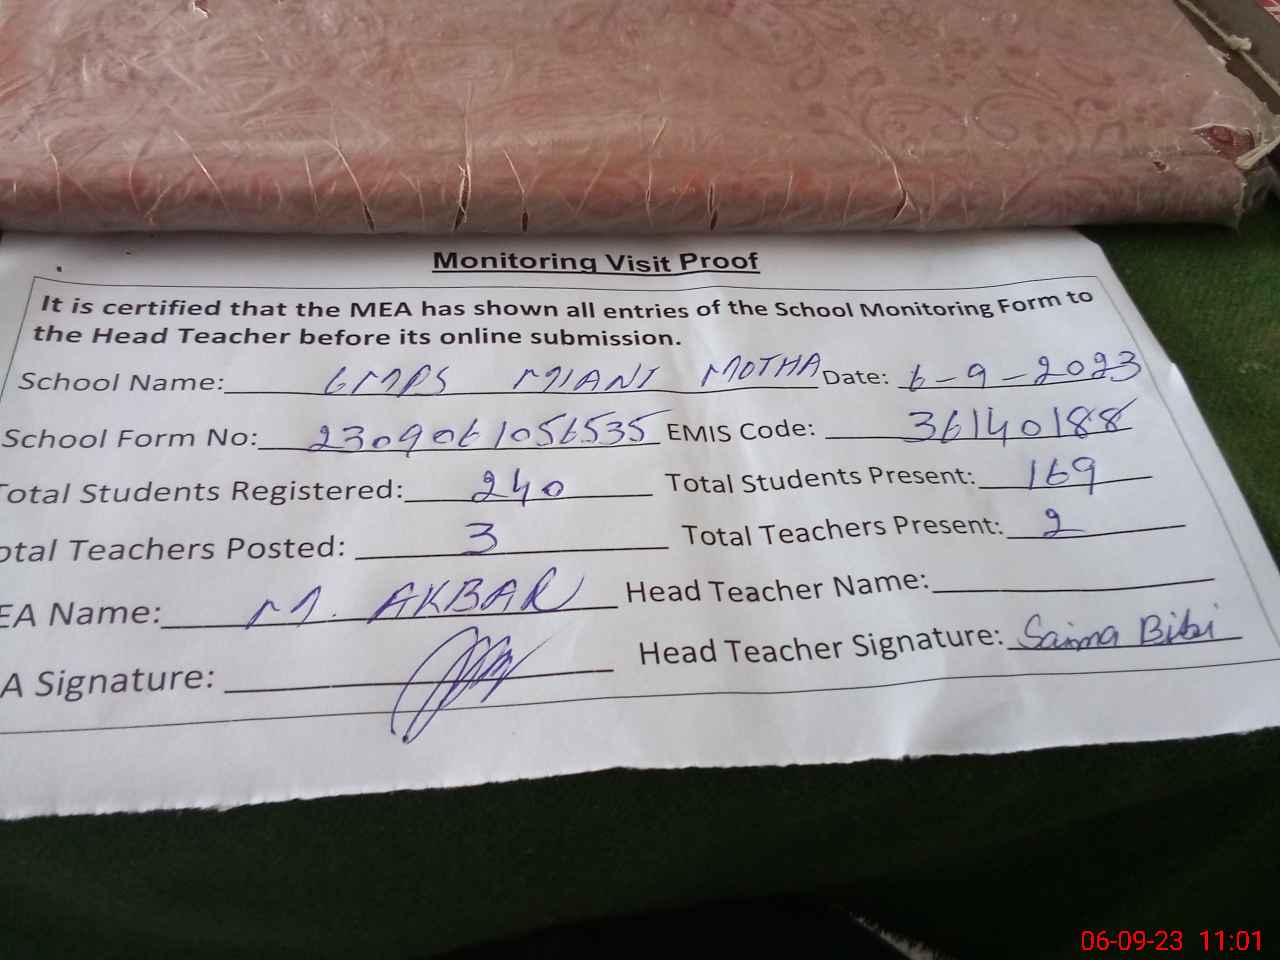 Monitoring Visit Proof
It is certified that the MEA has shown all entries of the School Monitoring Form to
the Head Teacher before its online submission.
School Name: GMPS MIANI MOTHA Date: 6-9-2023
School Form No: 2309061056535 EMIS Code: 36140188
Total Students Registered: 240 Total Students Present: 169
otal Teachers Posted: 3 Total Teachers Present: 2
EA Name: M. AKBAR Head Teacher Name:
A Signature: Head Teacher Signature: Saima Bibi
06-09-23 11:01